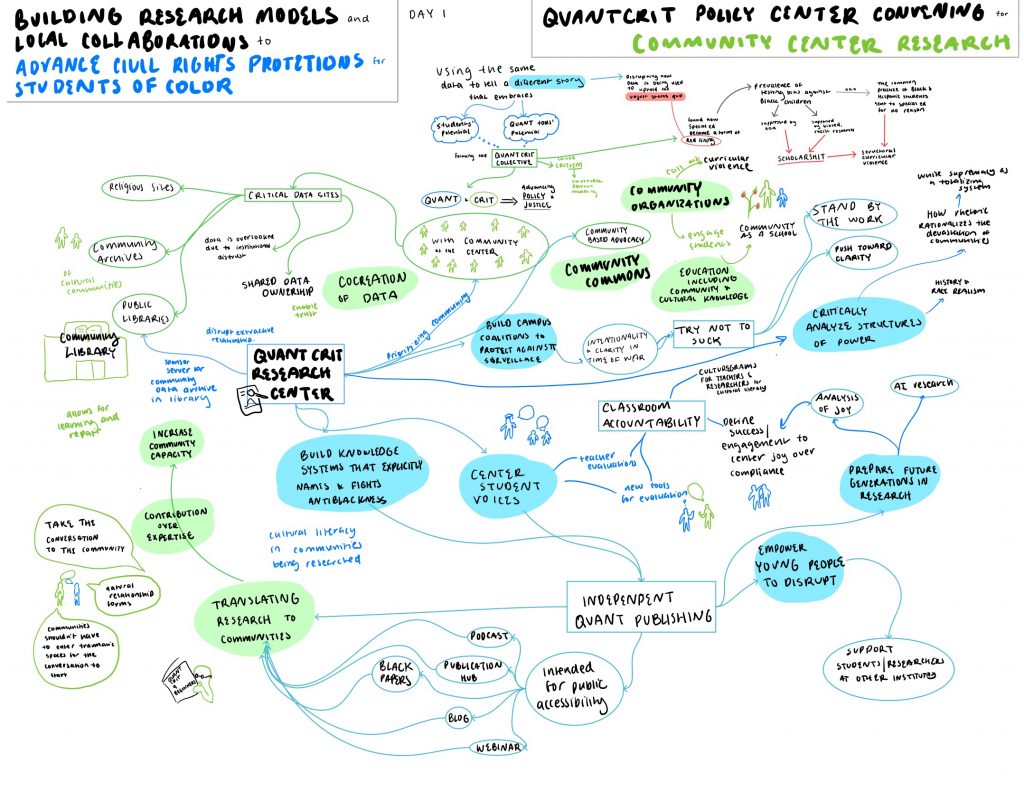 BUILDING RESEARCH MODELS and
LOCAL COLLABORATIONS to
ADVANCE CIVIL RIGHTS PROTETIONS for
STUDENTS OF COLOR
DAY 1
QUANTCRIT POLICY CENTER CONVENING for
COMMUNITY CENTER RESEARCH
using the same
data to tell a different story
that embraces
students'
potential
QUANT tools'
potential
Disrupting how
Data is being used
to uphold the
unjust status quo
found how
special ed
became a form of
Red lining
Prevalence of
testing bias against
Black children
supported by
supported
by biased,
racist research
SCHOLARSHIT
The common
practice of Black &
Hispanic students
sent to special ed
for no reason
structural
curricular
violence
forming the
QUANTCRIT
COLLECTIVE
QUANT + CRIT
Advancing
POLICY
& JUSTICE
call out curricular
violence
COMMUNITY
ORGANIZATIONS
engage students
COMMUNITY
AS A SCHOOL
EDUCATION
INCLUDING
COMMUNITY &
CULTURAL KNOWLEDGE
STAND BY
THE WORK
PUSH TOWARD
CLARITY
white supremacy as
a totalizing
system
HOW rhetoric
RATIONALIZES THE
DEVASTATION OF
COMMUNITIES
HISTORY &
RACE REALISM
CRITICALLY
ANALYZE STRUCTURES
OF POWER
Religious Sites
CRITICAL DATA SITES
Community
Archives
of
cultural
communities
PUBLIC
LIBRARIES
COMMUNITY
LIBRARY
data is overlooked
due to institutional
distrust
SHARED DATA
OWNERSHIP
enable
trust
COCREATION
OF DATA
WITH COMMUNITY
as the CENTER
COMMUNITY
BASED ADVOCACY
COMMUNITY
COMMONS
Prioritizing community
BUILD CAMPUS
COALITIONS TO
PROTECT AGAINST
SURVEILLANCE
INTENTIONALITY
& CLARITY IN
TIME OF WAR
TRY NOT TO
SUCK
disrupt extractive
relationship
QUANT CRIT
RESEARCH
CENTER
sponsor
server for
community
data archive
in library
allows for
learning and
repair
INCREASE
COMMUNITY
CAPACITY
CONTRIBUTION
OVER
EXPERTISE
BUILD KNOWLEDGE
SYSTEMS THAT EXPLICITLY
NAMES & FIGHTS
ANTIBLACKNESS
cultural literacy
in communities
being researched
CENTER
STUDENT
VOICES
CULTUREGRAMS
FOR TEACHERS &
RESEARCHERS for
cultural literacy
CLASSROOM
ACCOUNTABILITY
teacher
evaluations
new tools
for evaluation
DEFINE
SUCCESS/
engagement to
center joy over
compliance
ANALYSIS
OF JOY
AI research
PREPARE FUTURE
GENERATIONS IN
RESEARCH
EMPOWER
YOUNG PEOPLE
TO DISRUPT
SUPPORT
STUDENTS/RESEARCHERS
AT OTHER INSTITUTES
INDEPENDENT
QUANT PUBLISHING
TAKE THE
CONVERSATION
TO THE COMMUNITY
natural
relationship
forms
communities
shouldn't have
to enter traumatic
spaces for the
conversation to
start
TRANSLATING
RESEARCH TO
COMMUNITIES
PODCAST
BLACK
PAPERS
PUBLICATION
HUB
BLOG
WEBINAR
Intended
for public
accessibility